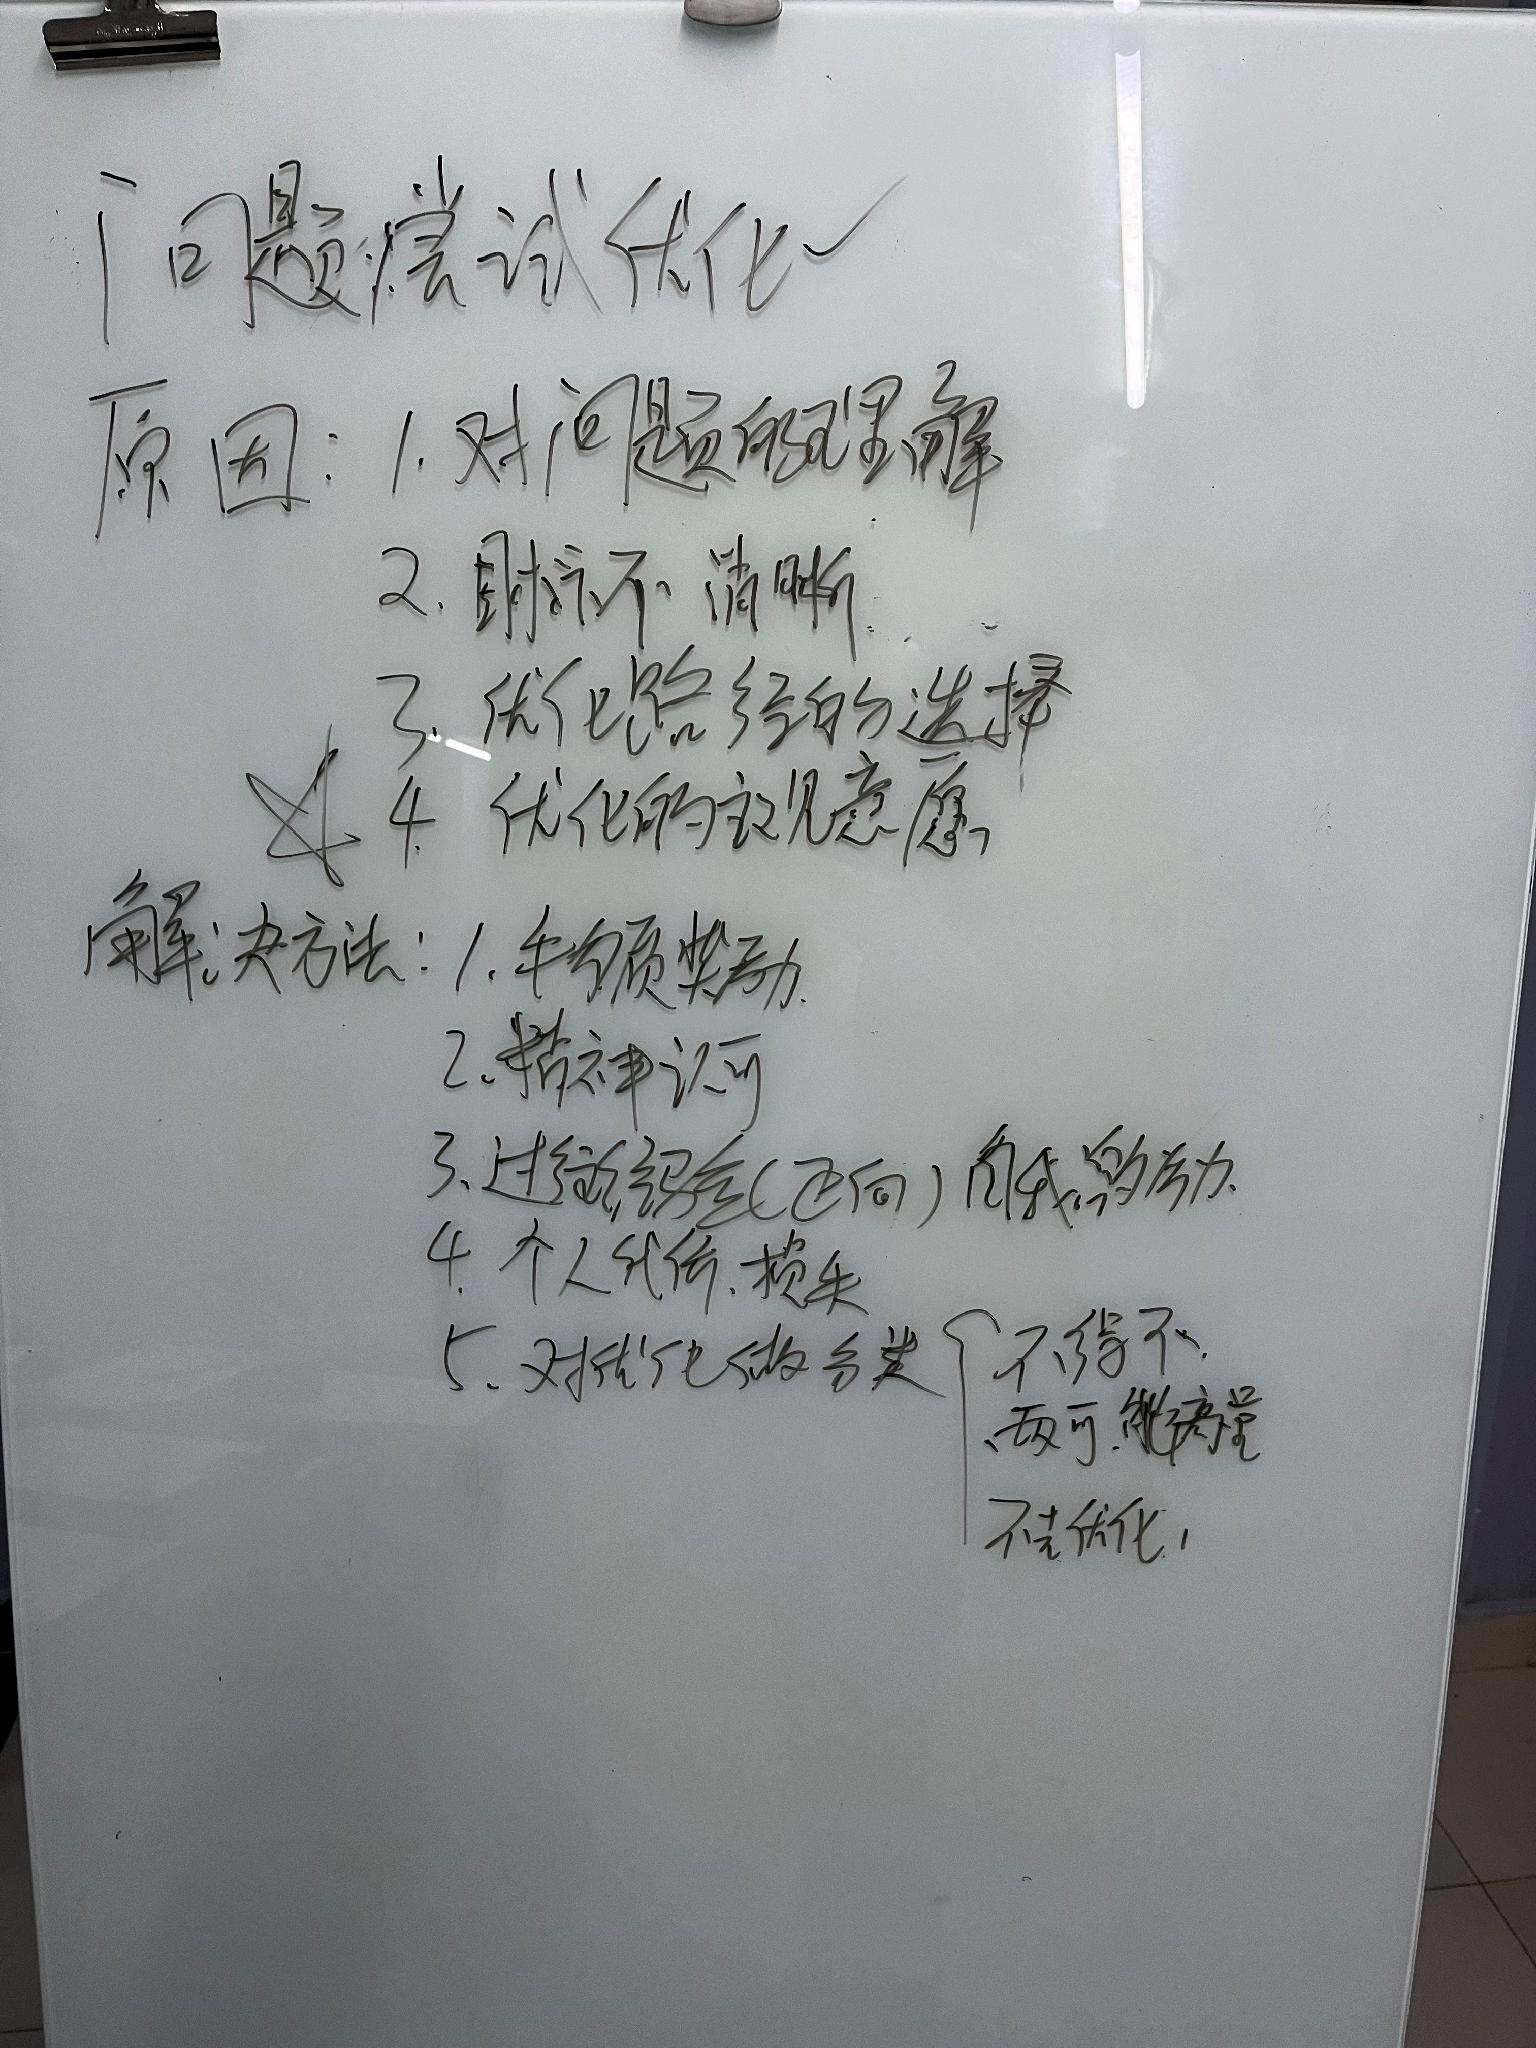 问题尝试优化
原因：1. 对问题的理解
2. 目标不清晰
3. 优化路经的选择
4. 优化的主观意愿
解决方法：1. 物质奖励
2. 精神认可
3. 过往经验（正向）自我激励
4. 个人代价、损失
5. 对优化做分类 不得不、
两可、能衡量
不去优化